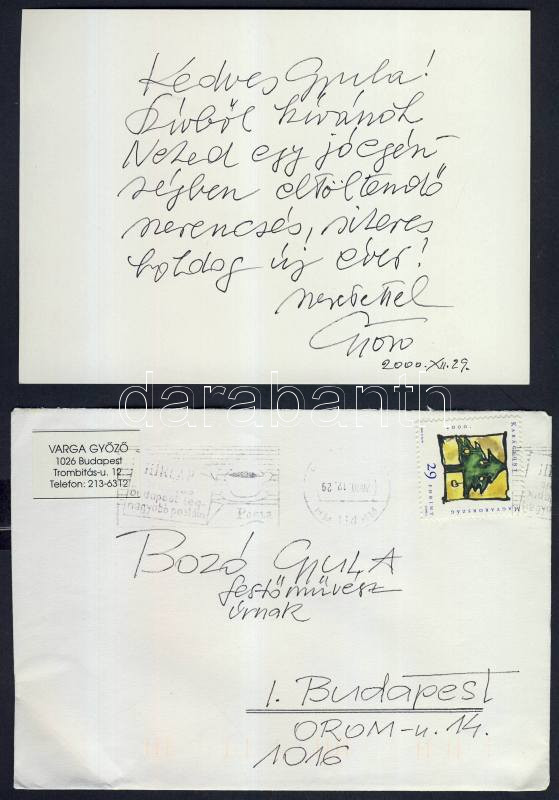 Kedves Gyula!
Szívből kívánok
Neked egy jóegén-
ségben eltöltendő
szerencsés, sikeres
boldog új évet!
szeretettel
Győző
2000.XII.29.
darabanth
VARGA GYŐZŐ
1026 Budapest
Trombitás-u. 12.
Telefon: 213-6312
Budapest leg-
nagyobb postája
Posta
2000 12.29
KARÁCSONY
2000
29 FORINT
MAGYARORSZÁG
BOZÓ GYULA
festőművész
úrnak
I. Budapest
OROM-u. 14.
1016